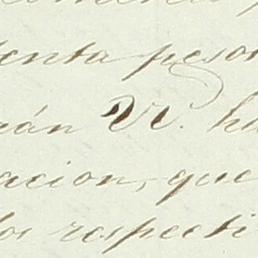 enta pesos
rán V. ha
acion, que
los respecti